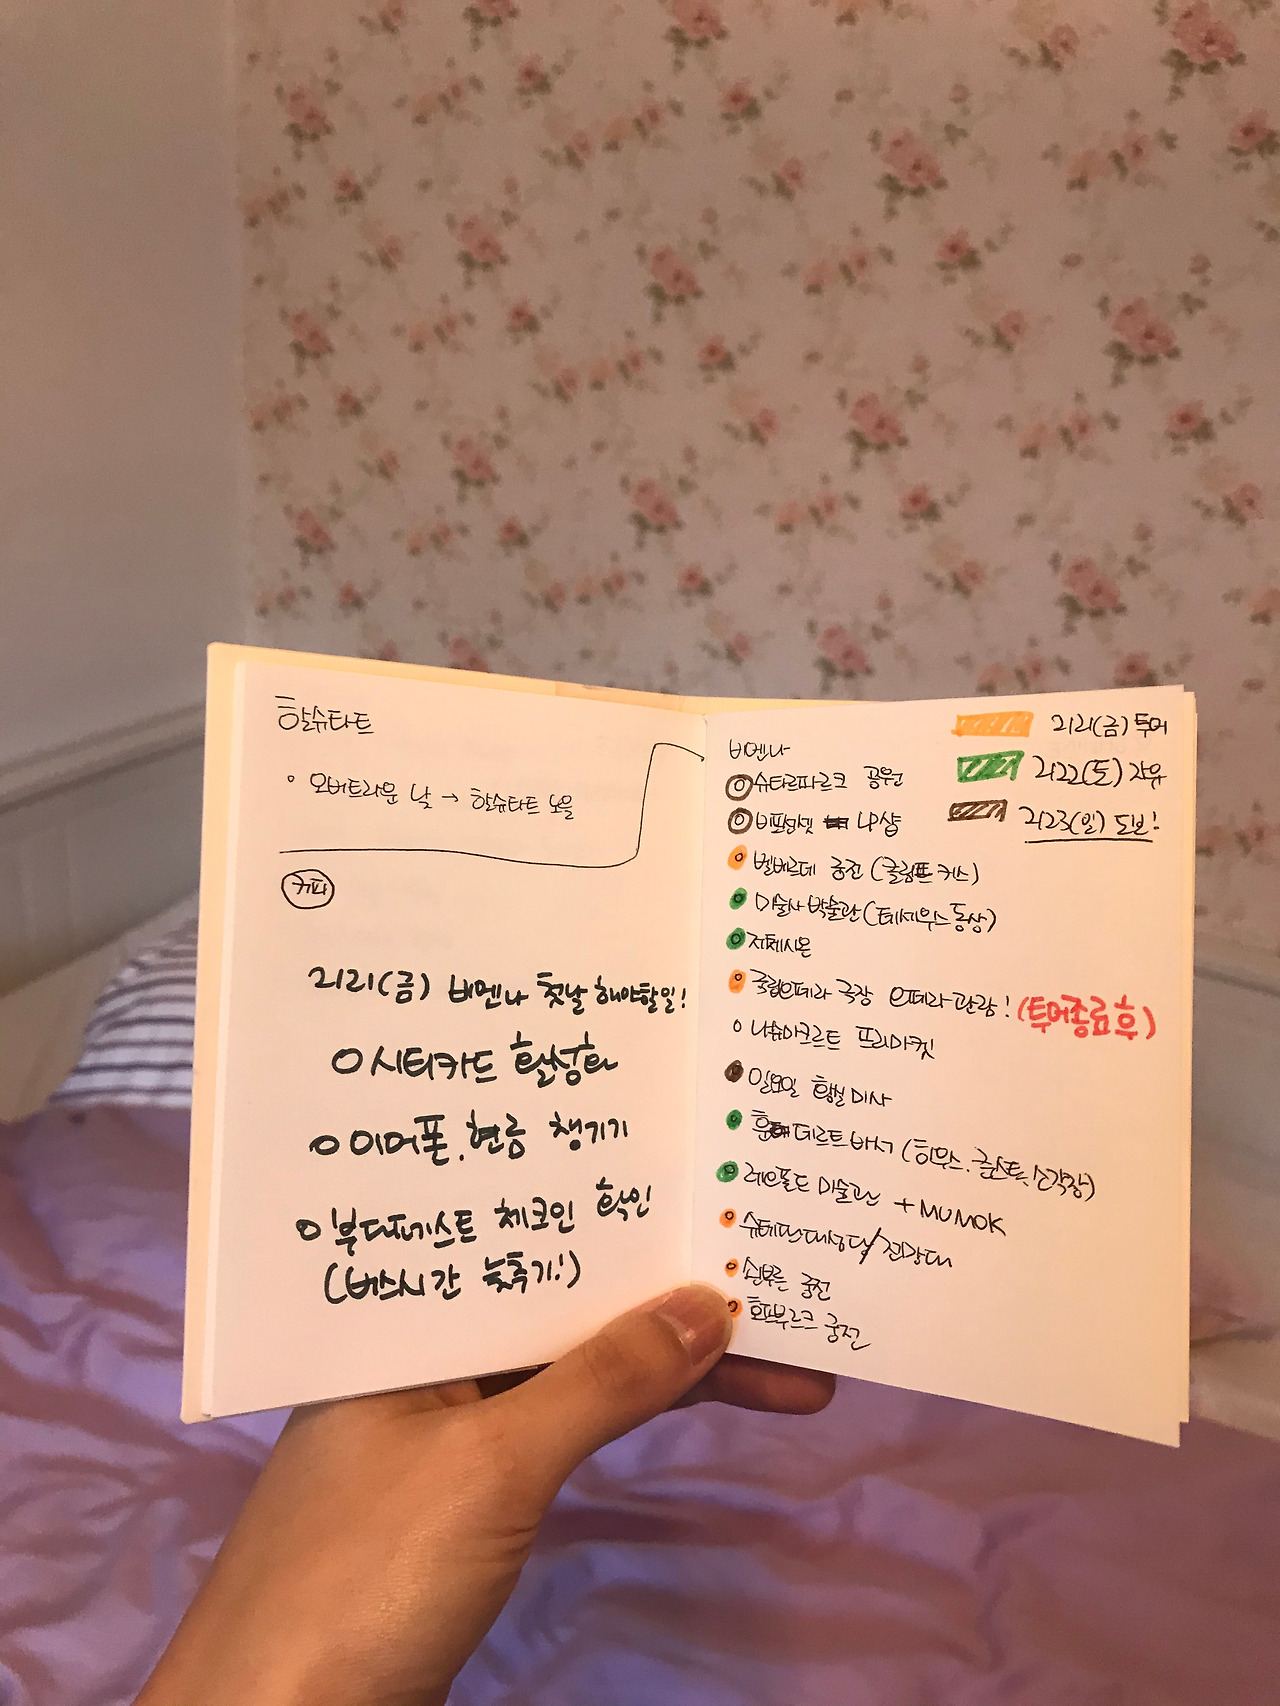 할슈타트
오버트라운 낮 → 할슈타트 노을
커피
2/21(금) 비엔나 첫날 해야할일!
시티카드 활성화
이어폰, 현금 챙기기
부다페스트 체크인 확인
(버스시간 늦추기!)
2/21(금) 투어
2/22(토) 자유
2/23(일) 도보!
비엔나
슈타르파르크 공원
나샵
벨베르데 궁전 (클림트 키스)
미술사 박물관 (테세우스 동상)
제체시온
국립오페라 극장 오페라 관광! (투어종료후)
나슈마르크트 프리마켓
일요일 아침 미사
훈데르트바서 (하우스, 쿤스트, 소각장)
레오폴드 미술관 + MUMOK
슈테판대성당/전망대
쉔부른 궁전
호프부르크 궁전